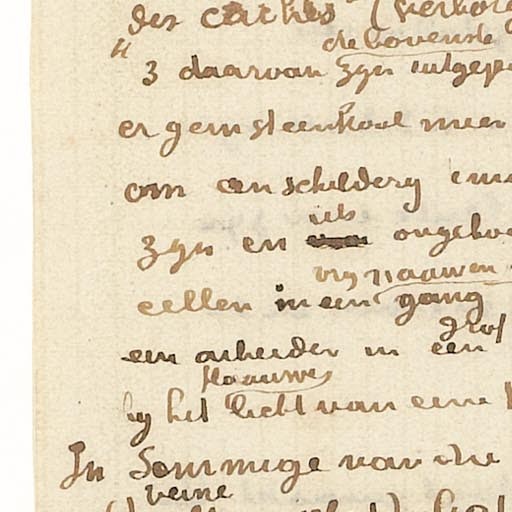 der caches (verkor
de bovenste
3 daarvan zyn uitgep
er geen steenkool meer
om een schildery
iets
zyn en ongehoo
vry naauwen
cellen in een gang
grof
een arbeider in een
flaauwe
by het licht van eene
In Sommige van die
veine